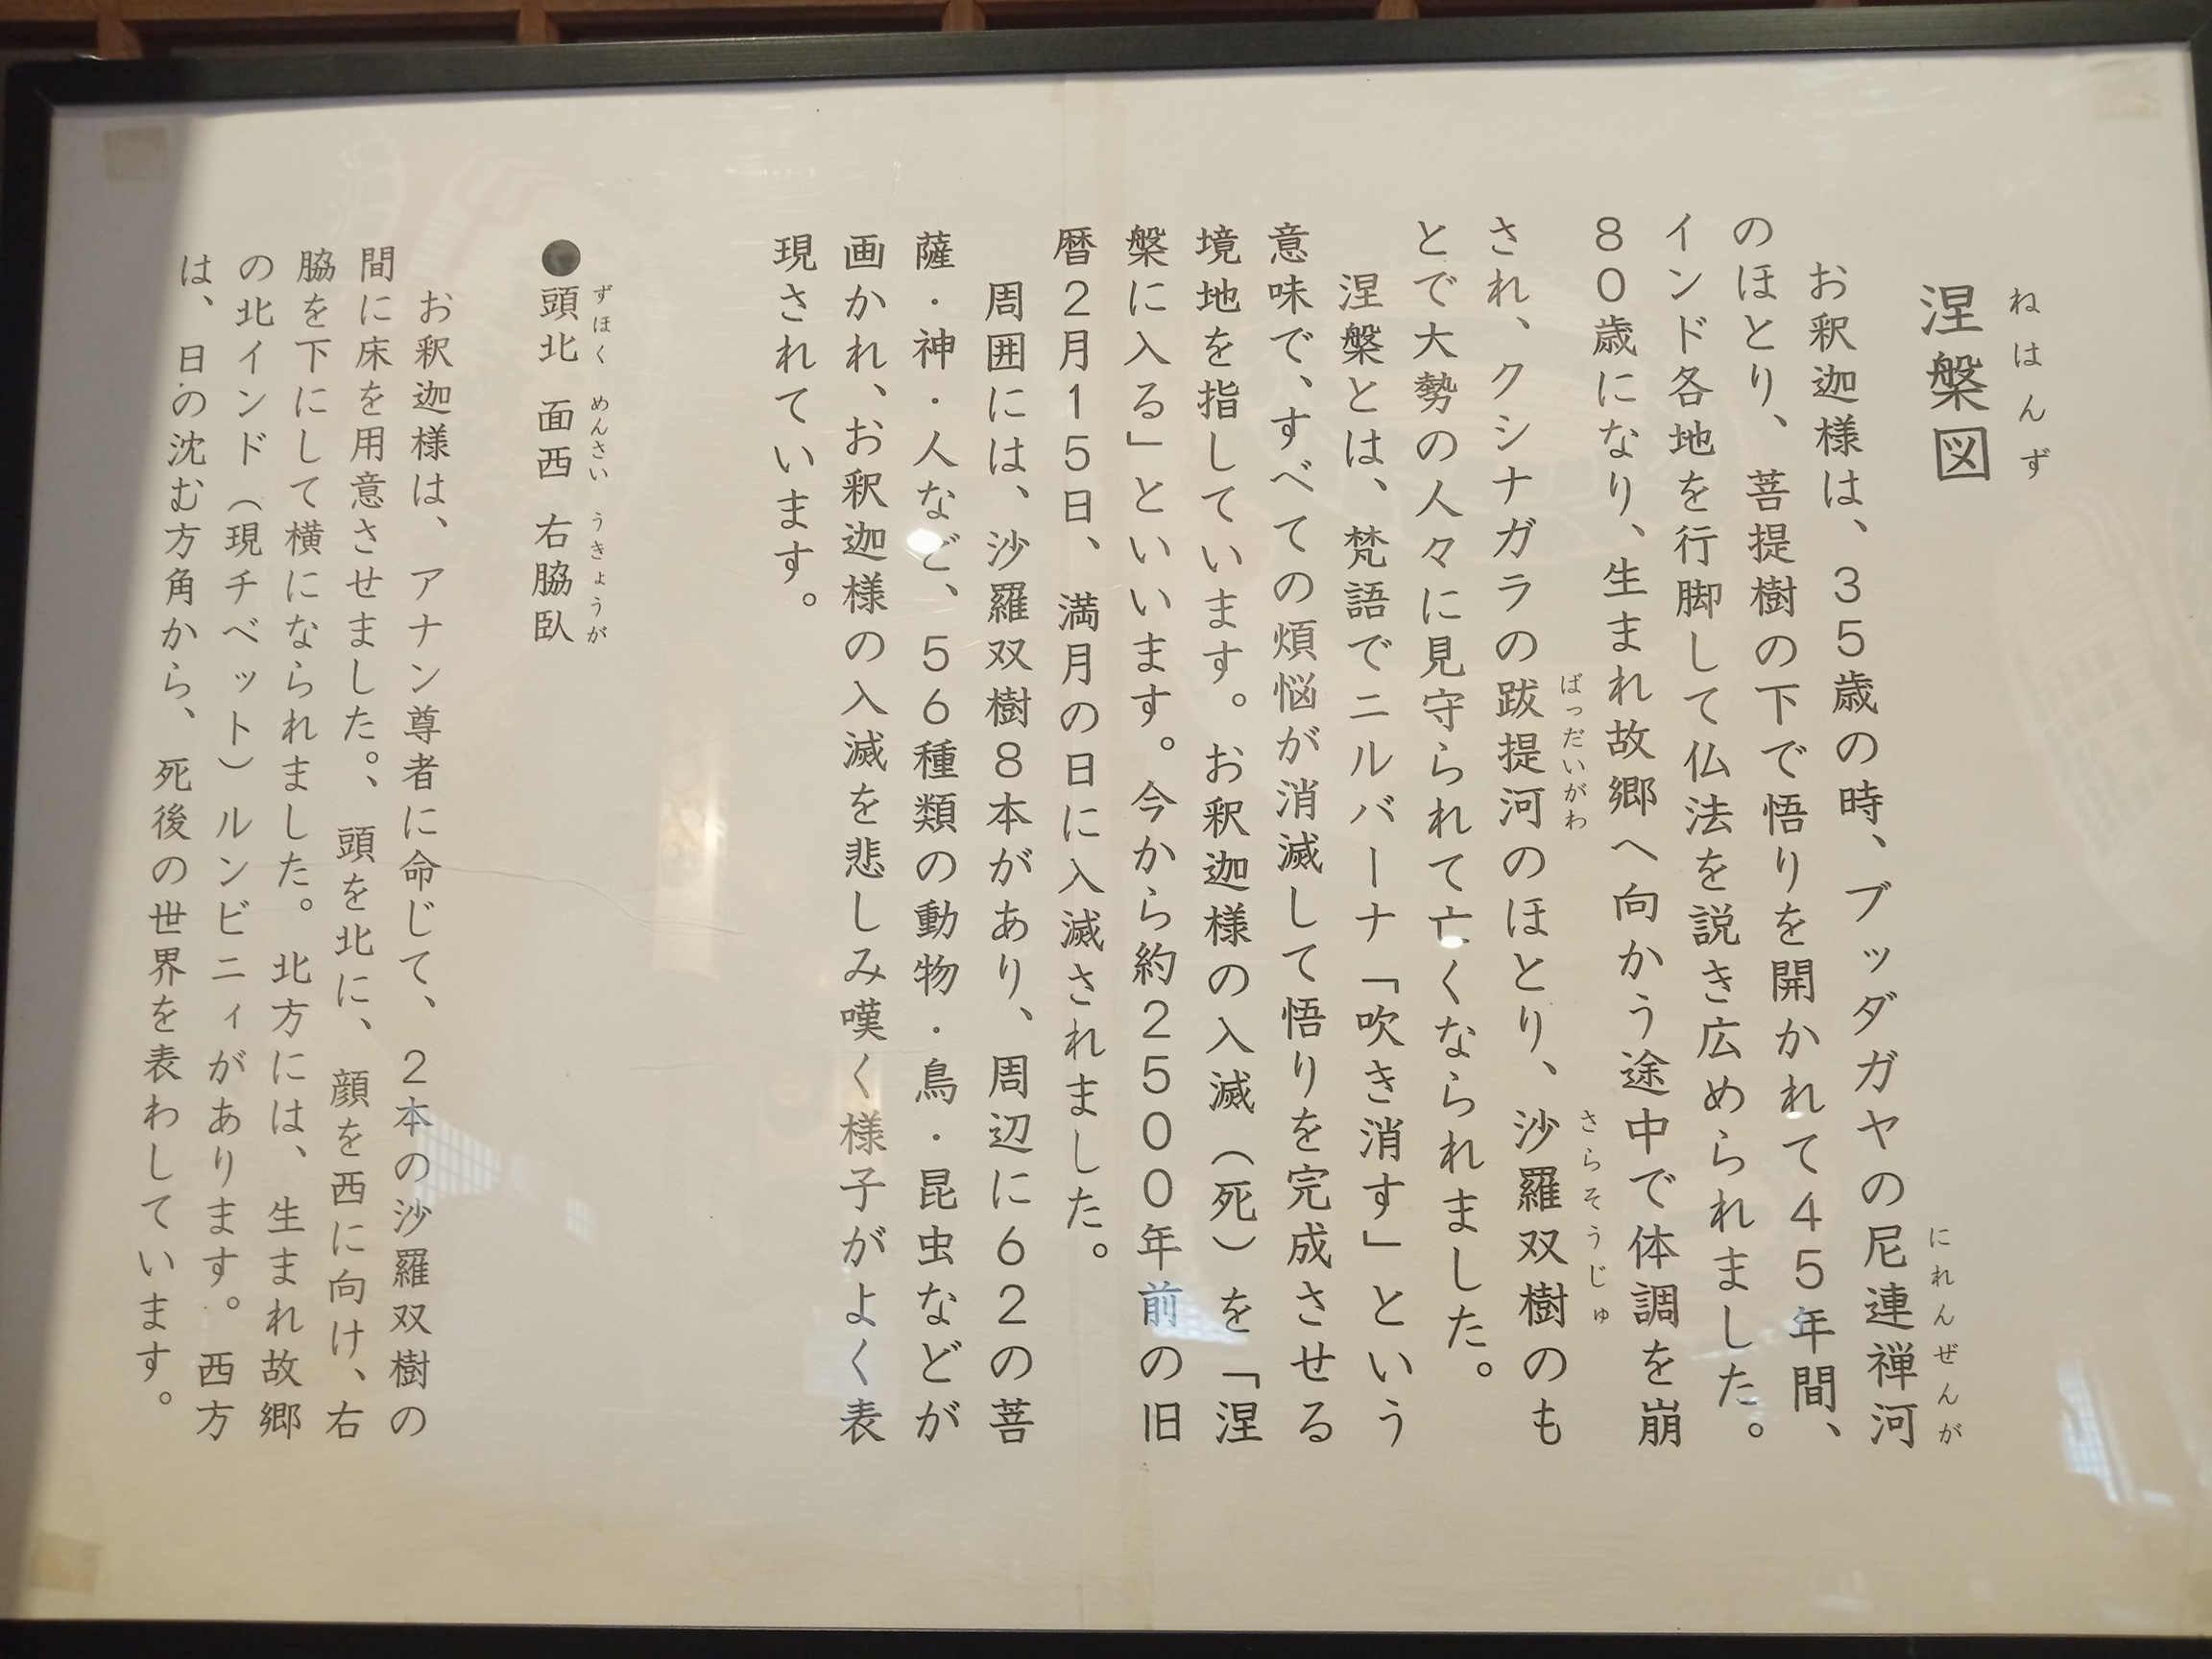 涅槃図
ねはんず
お釈迦様は、35歳の時、ブッダガヤの尼連禅河
にれんぜんが
のほとり、菩提樹の下で悟りを開かれて45年間、
インド各地を行脚して仏法を説き広められました。
80歳になり、生まれ故郷へ向かう途中で体調を崩
され、クシナガラの跋提河のほとり、沙羅双樹のも
ばつだいがわ さらそうじゅ
とで大勢の人々に見守られて亡くなられました。
涅槃とは、梵語でニルバーナ「吹き消す」という
意味で、すべての煩悩が消滅して悟りを完成させる
境地を指しています。お釈迦様の入滅（死）を「涅
槃に入る」といいます。今から約2500年前の旧
暦2月15日、満月の日に入滅されました。
周囲には、沙羅双樹8本があり、周辺に62の菩
薩・神・人など、56種類の動物・鳥・昆虫などが
画かれ、お釈迦様の入滅を悲しみ嘆く様子がよく表
現されています。
●頭北 面西 右脇臥
ずほく めんさい うきょうが
お釈迦様は、アナン尊者に命じて、2本の沙羅双樹の
間に床を用意させました。、頭を北に、顔を西に向け、右
脇を下にして横になられました。北方には、生まれ故郷
の北インド（現チベット）ルンビニィがあります。西方
は、日の沈む方角から、死後の世界を表わしています。